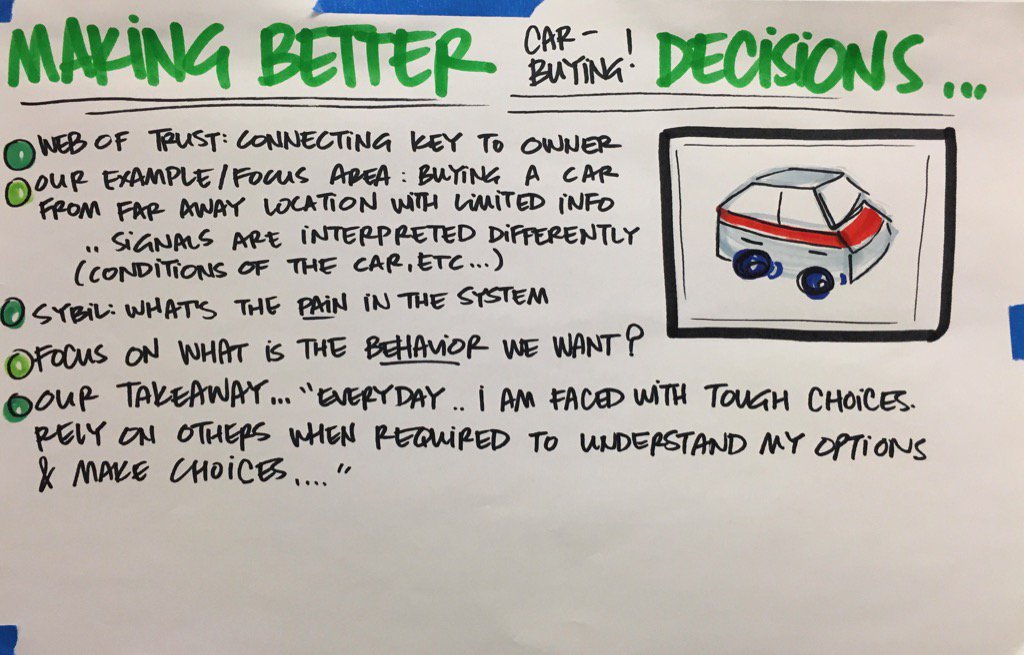 MAKING BETTER CAR- BUYING! DECISIONS...
WEB OF TRUST: CONNECTING KEY TO OWNER
OUR EXAMPLE/FOCUS AREA: BUYING A CAR
FROM FAR AWAY LOCATION WITH LIMITED INFO
.. SIGNALS ARE INTERPRETED DIFFERENTLY
(CONDITIONS OF THE CAR, ETC...)
SYBIL: WHAT'S THE PAIN IN THE SYSTEM
FOCUS ON WHAT IS THE BEHAVIOR WE WANT?
OUR TAKEAWAY... "EVERYDAY.. I AM FACED WITH TOUGH CHOICES.
RELY ON OTHERS WHEN REQUIRED TO UNDERSTAND MY OPTIONS
& MAKE CHOICES...."